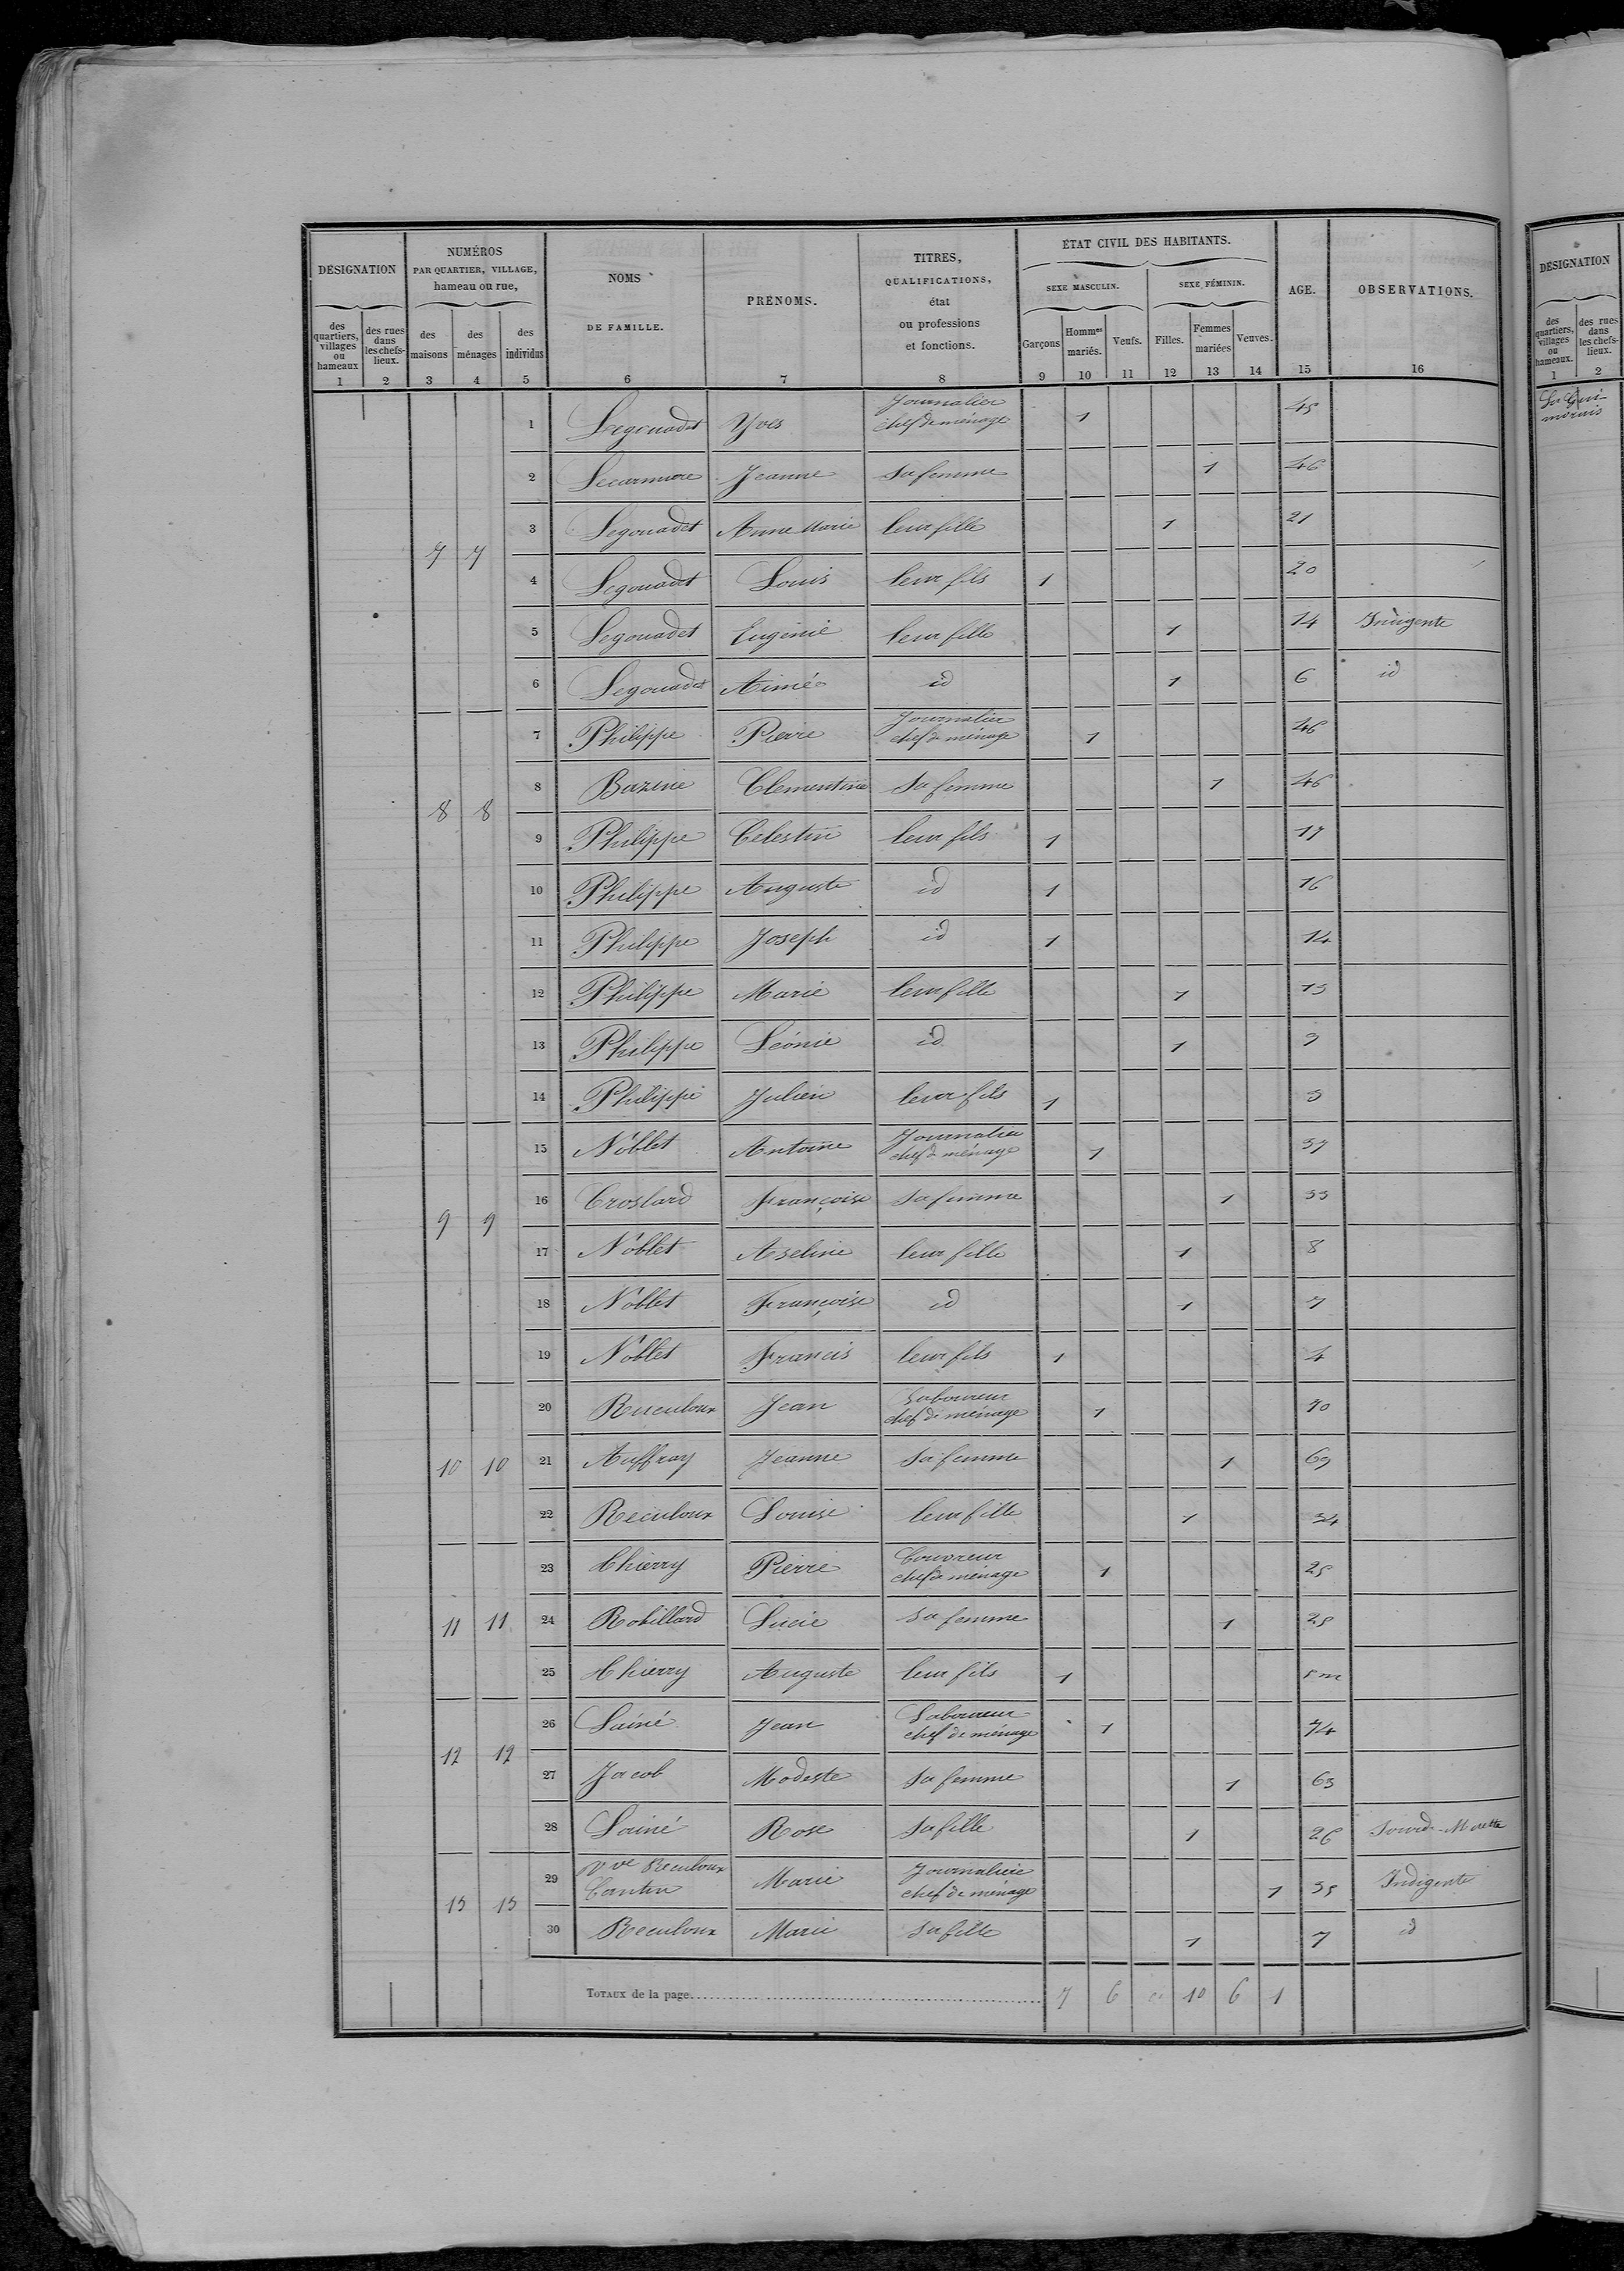 DÉSIGNATION
NUMÉROS
PAR QUARTIER, VILLAGE,
hameau ou rue,
NOMS
DE FAMILLE.
PRÉNOMS.
TITRES,
QUALIFICATIONS,
état
ou professions
et fonctions.
ÉTAT CIVIL DES HABITANTS.
SEXE MASCULIN.
SEXE FÉMININ.
AGE.
OBSERVATIONS.
des quartiers, villages ou hameaux
des rues dans les chefs-lieux.
des maisons
des ménages
des individus
Garçons
Hommes mariés.
Veufs.
Filles.
Femmes mariées
Veuves.
1 2 3 4 5 6 7 8 9 10 11 12 13 14 15 16
1 Legouadet Yves Journalier chef de ménage 1 45
2 Jeanne Sa femme 1 46
3 Legouadet Anne Marie leur fille 1 21
7 7
4 Legouadet Louis leur fils 1 20
5 Legouadet Eugénie leur fille 1 14 Indigente
6 Legouadet Aimée id 1 6 id
7 Philippe Pierre Journalier chef de ménage 1 46
8 Bazine Clementine Sa femme 1 46
8 8
9 Philippe Celestin leur fils 1 17
10 Philippe Auguste id 1 16
11 Philippe Joseph id 1 14
12 Philippe Marie leur fille 1 13
13 Philippe Léonie id 1 9
14 Philippe Julien leur fils 1 3
15 Noblet Antoine Journalier chef de ménage 1 37
16 Croslard Françoise Sa femme 1 33
9 9
17 Noblet Aseline leur fille 1 8
18 Noblet Françoise id 1 7
19 Noblet Francis leur fils 1 4
20 Reculoux Jean Laboureur chef de ménage 1 70
10 10 21 Auffray Jeanne Sa femme 1 69
22 Reculoux Louise leur fille 1 34
23 Thierry Pierre Couvreur chef de ménage 1 25
11 11 24 Robillard Lucie Sa femme 1 25
25 Thierry Auguste leur fils 1
26 Lainé Jean Laboureur chef de ménage 1 74
12 12
27 Jacob Modeste Sa femme 1 63
28 Lainé Rose Sa fille 1 26 Sourde-Muette
29 Vve Reculoux Cantin Marie Journalière chef de ménage 1 35 Indigente
13 13
30 Reculoux Marie Sa fille 1 7 id
TOTAUX de la page 7 6 10 6 1
DÉSIGNATION
des quartiers, villages ou hameaux.
des rues dans les chefs-lieux.
1 2
La Gui-
morais